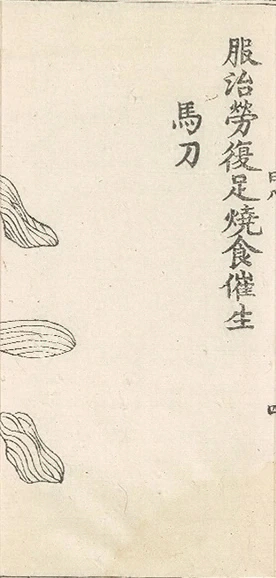 服治勞復足燒食催生
馬刀